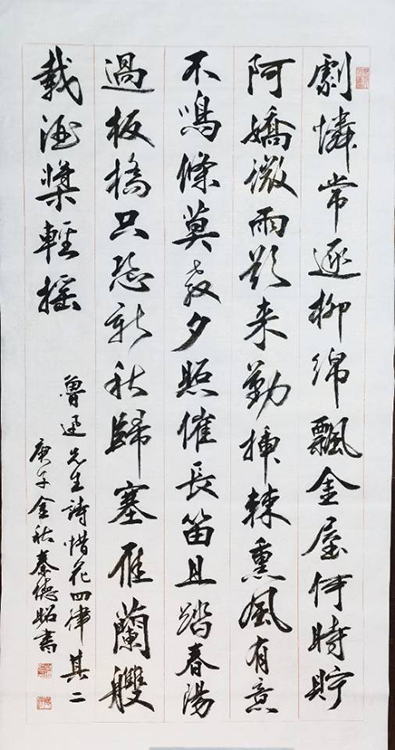 劇憐常逐柳綿飄金屋何時貯
阿嬌微雨欲来勤插棘熏風有意
不鳴條莫教夕照催長笛且踏春陽
過板橋只恐新秋歸塞雁蘭艭
載酒槳輕摇
魯迅先生詩惜花四律其二
庚子金秋秦德昭書